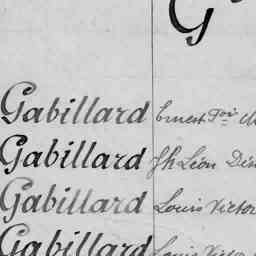 G
Gabillard Ernest
Gabillard Jh Léon
Gabillard Louis Victor
Gabillard Louis Victor